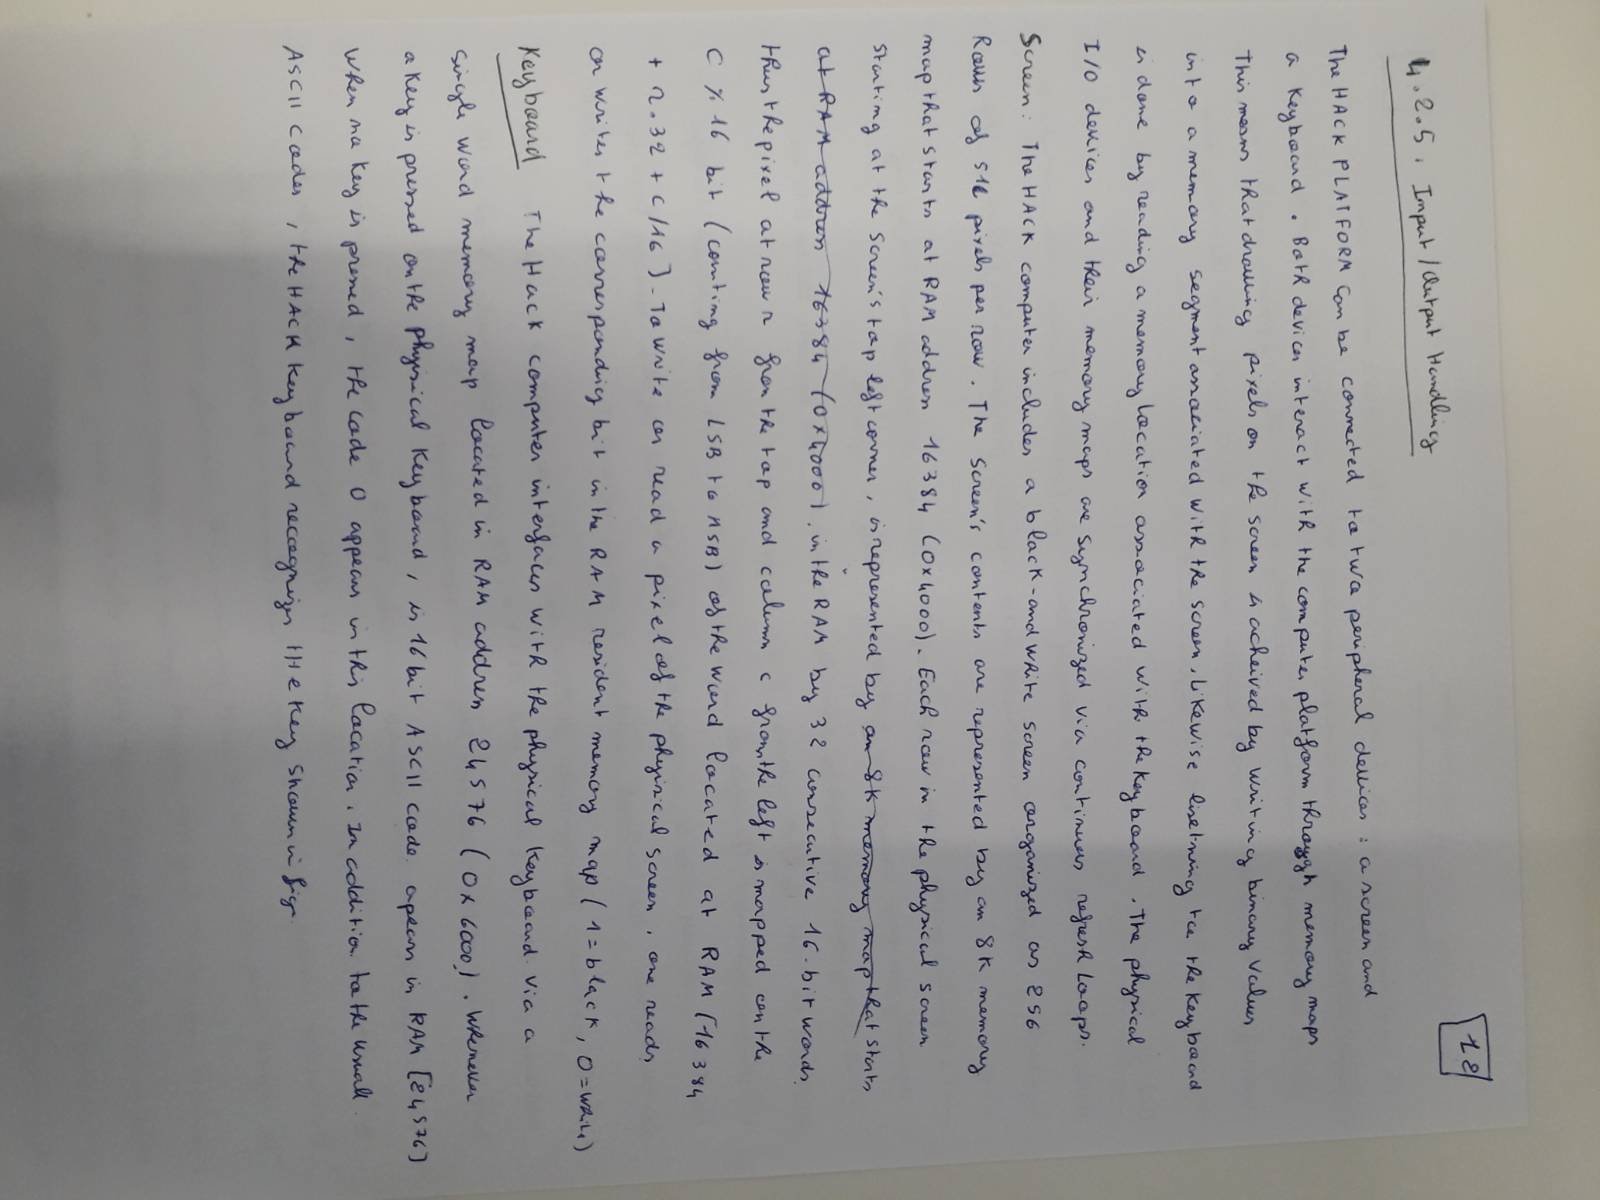 18
4.2.5. Input/Output Handling
The HACK PLATFORM can be connected to two peripheral devices: a screen and
a Keyboard. Both devices interact with the computer platform through memory maps
This means that drawing pixels on the screen is acheived by writing binary values
into a memory segment associated with the screen. Likewise listning toe the keyboard
is done by reading a memory location associated with the keyboard. The physical
I/O devices and their memory maps are synchronized via continuus refresh loops.
Screen: The HACK computer includes a black-and-white screen organized as 256
Rows of 512 pixels per row. The screen's contents are represented by an 8K memory
map that starts at RAM address 16384 (0x4000). Each row in the physical screen
starting at the screen's top left corner, is represented by an 8K memory map that starts
at RAM address 16384 (0x4000). in the RAM by 32 consecutive 16-bit words.
thus the pixel at row r from the top and column c from the left is mapped on the
C % 16 bit (counting from LSB to MSB) of the word located at RAM [16384
+ r.32 + C/16]. To write or read a pixel of the physical screen, one reads
or writes the corresponding bit in the RAM resident memory map (1=black, 0=white)
Keyboard The Hack computer interfaces with the physical keyboard via a
single word memory map located in RAM address 24576 (0x6000). Whenever
a key is pressed on the physical keyboard, is 16 bit ASCII code appears in RAM [24576]
When no key is pressed, the code 0 appears in this location. In addition to the usual
ASCII codes, the HACK keyboard recognizes the key shown in fig.